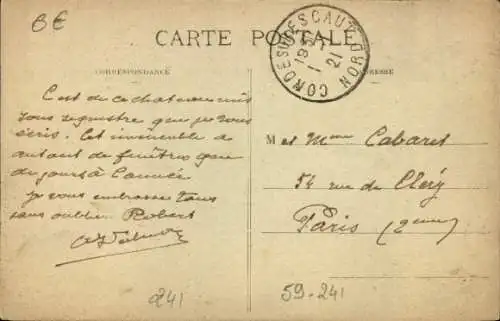 B€
CARTE POSTALE
CONDE SUR L'ESCAUT NORD
19
1
21
CORRESPONDANCE
ADRESSE
C'est de ce chateau mis
sous sequestre que je vous
écris. Cet immeuble a
autant de fenêtres que
de jours à l'année
je vous embrasse tous
sans oublier Robert
M et Mme Cabaret
54 rue de Cléry
Paris (2eme)
241
59-241